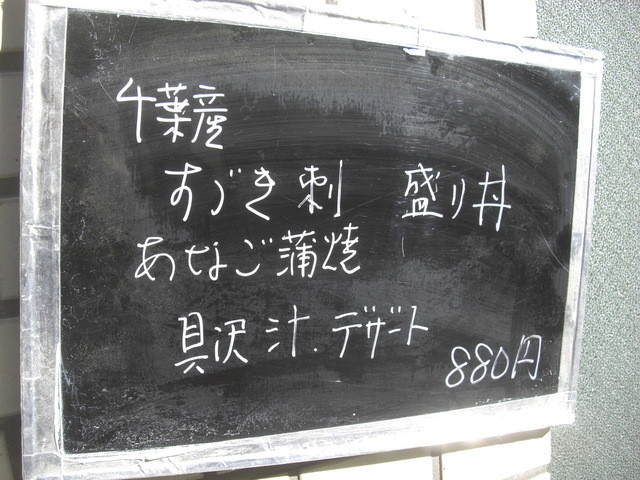 千葉産
すずき刺 盛り丼
あなご蒲焼
具沢汁.デザート
880円